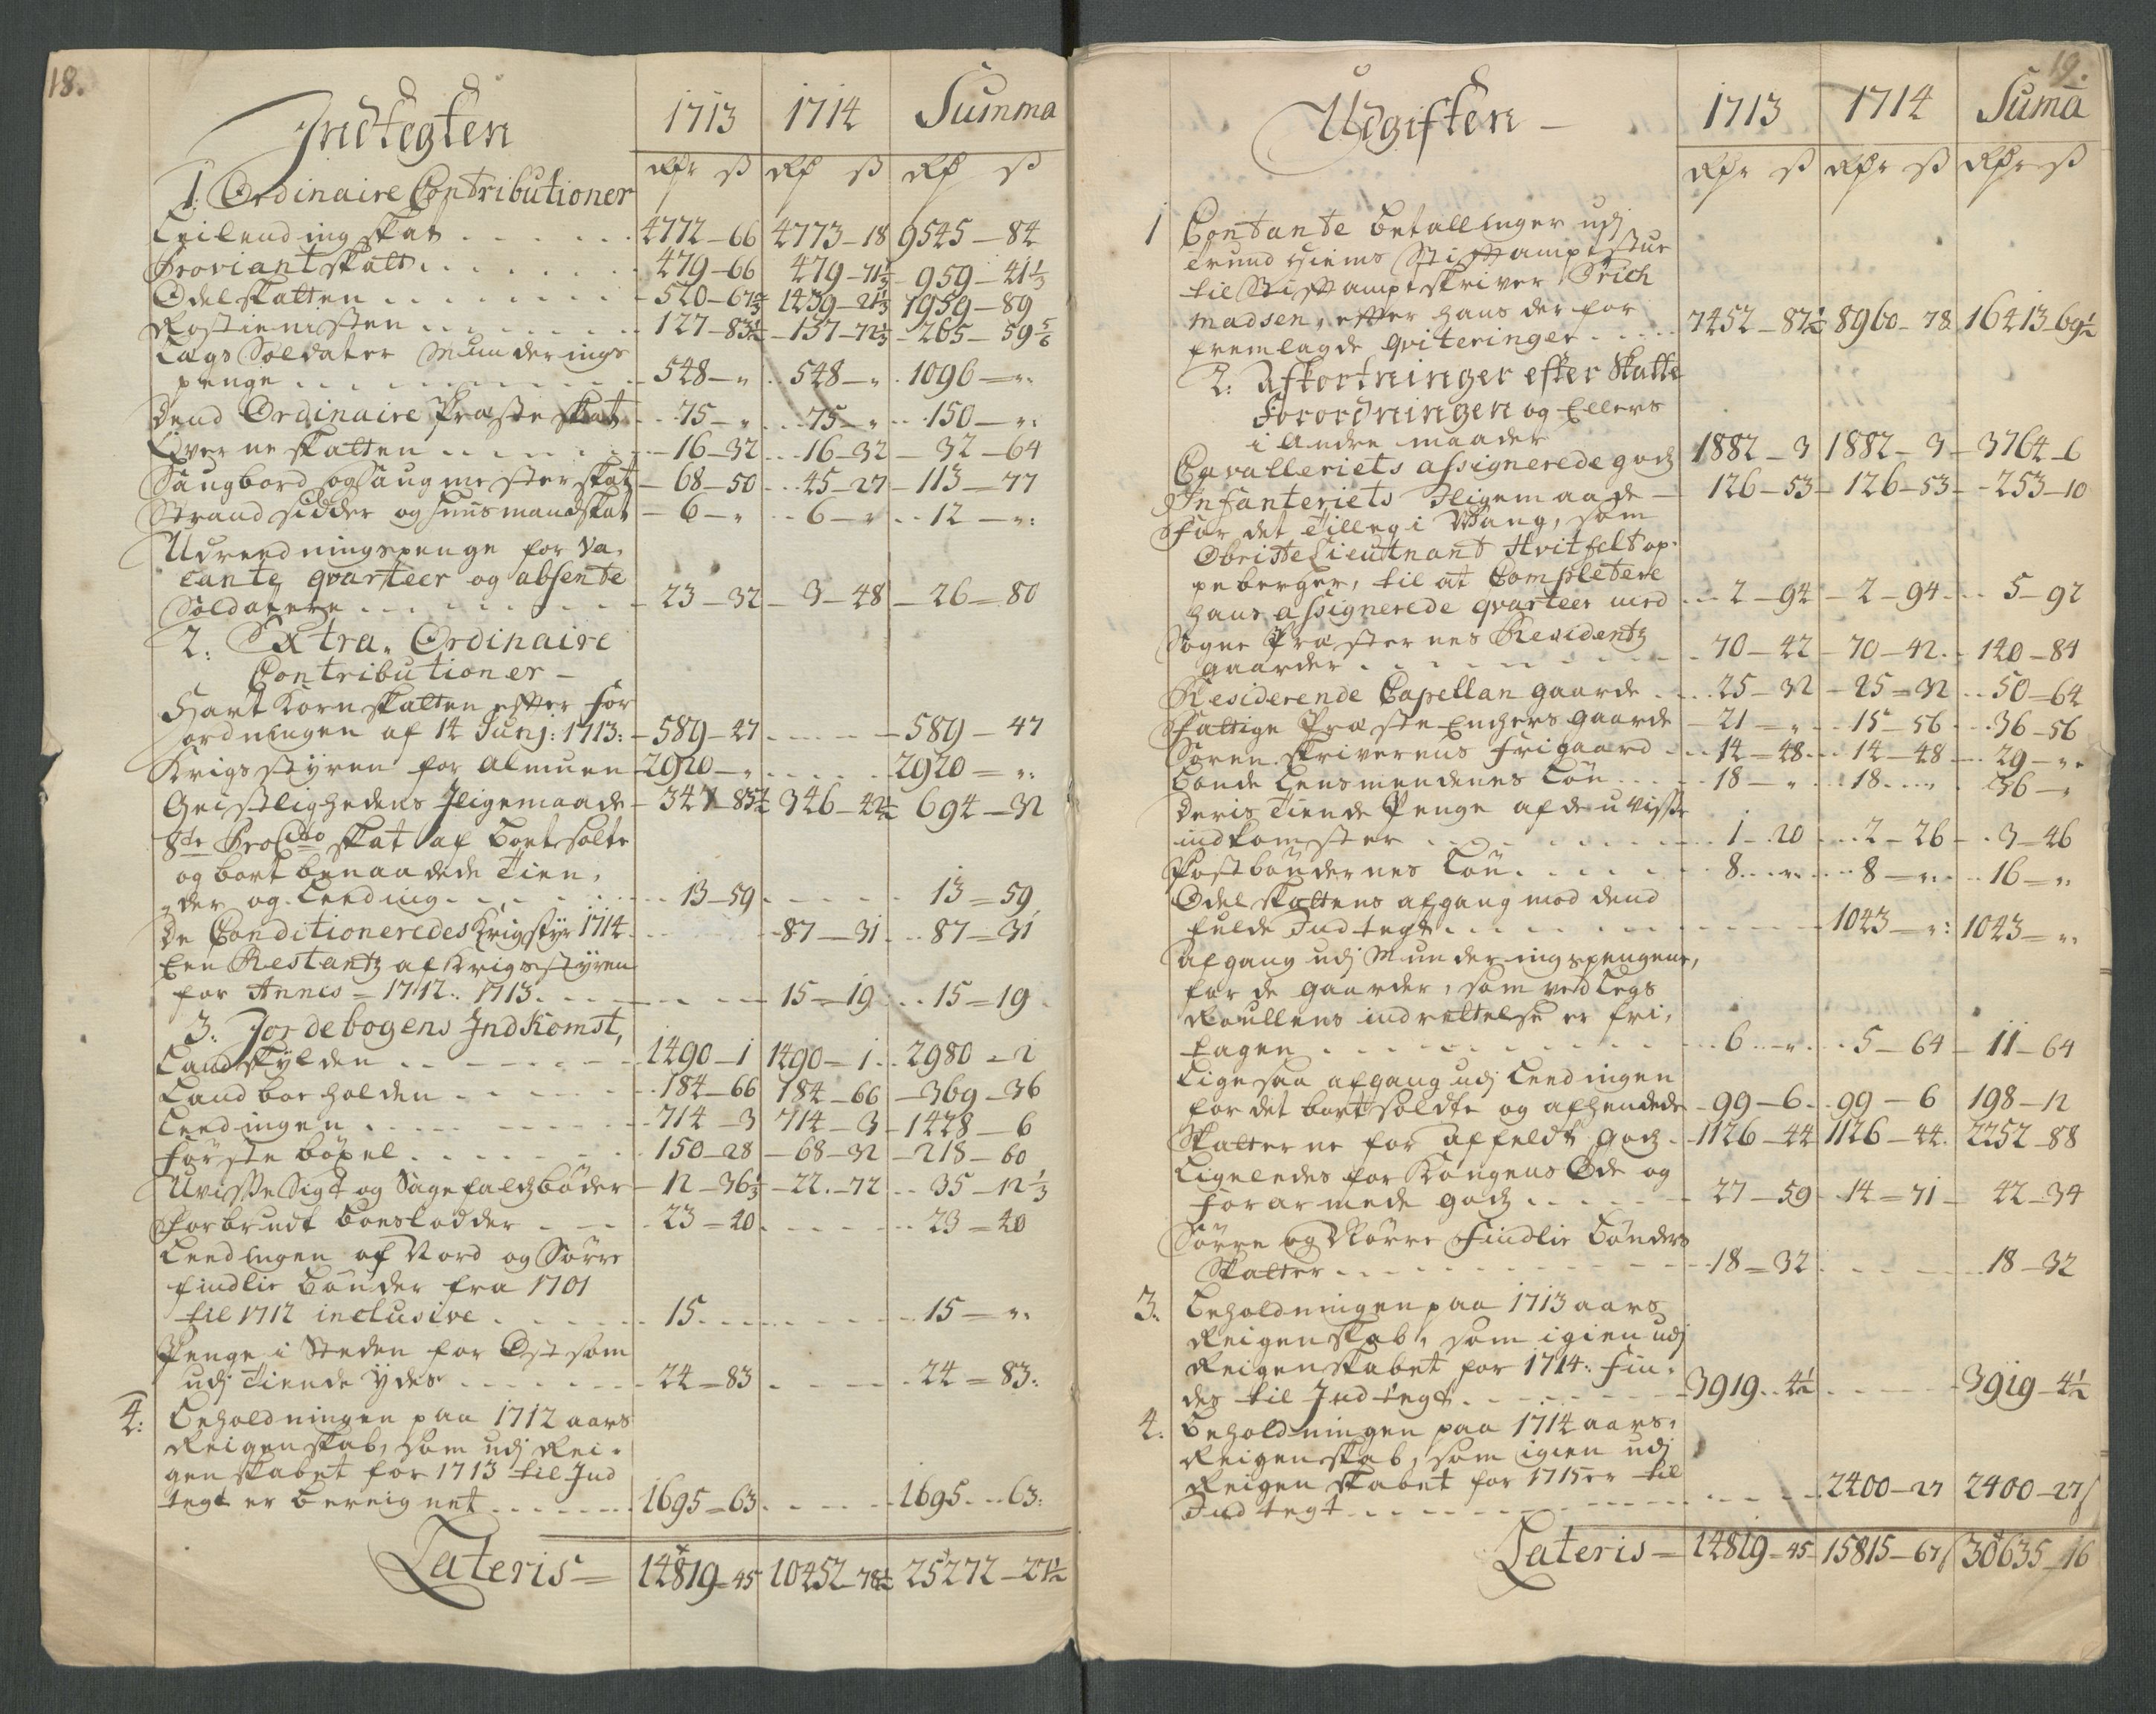 18.
Indtegten 1713 1714 Summa
Rdr ß Rd ß Rd ß
1. Ordinaire Contributioner
Leilending skat 4772-66 4773-18 9545-84
Proviant skatt 479-66 479-71⅓ 959-41⅓
Odelskatten 520-67⅔ 1439-21⅓ 1959-89
Rostienisten 127-83½ 137-72⅓ 265-59⅚
Lægs Soldater Munderings
penge 548-" 548-" 1096-"
Dend Ordinaire Præste skat 75-" 75-" 150-"
Liverne skatten 16-32 16-32 32-64
Saugbord og Saugmester skat 68-50 45-27 113-77
Strand sidder og huusmandskat 6-" 6-" 12-"
Udreedningspenge for Va,
cante qvarteer og absente
Soldatere 23-32 3-48 26-80
2. Extra, Ordinaire
Contributioner
Hart Korn skatten efter For
ordningen af 14 Junj: 1713: 589-47 589-47
Krigs styren for Almuen 2920-" 2920-"
Geistlighedens Iligemaade 347-85½ 346-42½ 694-32
8de ProCto skat af bortsolte
og bort benaadede Tien,
der og Leeding 13-59 13-59
De Conditioneredes Krigstyr 1714 87-31 87-31
Een Restantz af Krigsstyren
for Annis 1712: 1713. 15-19 15-19
3. Jordebogens Indkomst,
Landskylden 1490-1 1490-1 2980-2
Landbor holden 184-66 184-66 369-36
Leedingen 714-3 714-3 1428-6
Første bøxel 150-28 68-32 218-60
Uvisse Sigt og Sagefaldsbøder 12-36⅓ 22-72 35-12⅓
Forbrudt boeslodder 23-40 23-40
Leedingen af Nord og Sørre
findlie bønder fra 1701
til 1712 inclusive 15 15-"
Penge i Steden for Ost som
udj Tiende ydes 24-83 24-83
4: Beholdningen paa 1712 aars
Reigenskab, som udj Rei,
genskabet for 1713 til Ind
tegt er bereignet 1695-63 1695-63
Lateris 14819-45 10452-78½ 25272-27½
19.
Udgiften 1713 1714 Suma
Rdr ß Rdr ß Rdr ß
1 Contante betallinger udj
Trund Hiems Stiftamptstue
til Stiftamptskriver Erich
Madsen, efter hans der for
fremlagde qviteringer 7452-87½ 8960-78 16413-69½
2: Afkortninger efter Skatte
Forordningen og Ellers
i Andre maader
Cavalleriets assignerede godz 1882-3 1882-3 3764-6
Infanteriets Iligemaade 126-53 126-53 253-10
For det Tilleg i Wang, som
Obriste Lieutnant Hvitfelt op,
peberger, til at Completere
hans assignerede qvarteer med 2-94 2-94 5-92
Sogne Præsternes Residentz
gaarder 70-42 70-42 140-84
Residerende Capellan gaarde 25-32 25-32 50-64
Fattige Præste Enchers gaarde 21-" 15-56 36-56
Soren skriverens frigaard 14-48 14-48 29-"
Bonde Lensmendenes Løn 18-" 18 36-"
Deris Tiende Penge af de uvisse
indkomster 1-20 2-26 3-46
Postbøndernes Løn 8-" 8-" 16-"
Odelskattens afgang mod dend
fulde Indtegt 1043-" 1043-"
Afgang udj Munderingspengene,
for de gaarder, som ved Legs
Roullens indrettelse er fri,
tagen 6-" 5-64 11-64
Ligesaa afgang udj Leedingen
for det bortsoldte og afhendede 99-6 99-6 198-12
Skatterne for affeldt godz 1126-44 1126-44 2252-88
Ligeledes for Kongens Øde og
forarmede godz 27-59 14-71 42-34
Sørre og Nørre Findlie Bønders
Skatter 18-32 18-32
3. Beholdningen paa 1713 aars
Reigenskab, som igien udj
Reigenskabet for 1714: fin,
des til Indtegt 3919-4½ 3919-4½
4. Beholdningen paa 1714 aars,
Reigenskab, som igien udj
Reigenskabet for 1715 er til
Indtegt 2400-27 2400-27
Lateris 14819-45 15815-67 30635-16